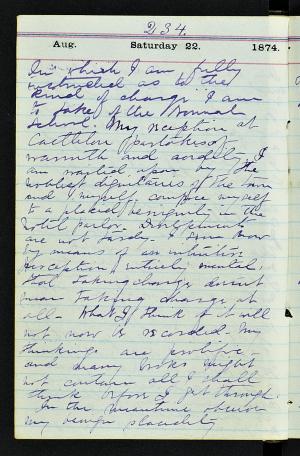 234.
Aug. Saturday 22. 1874.
In which I am fully
instructed as to the
kind of charge I am
to take of the Normal
School. My reception at
Castleton partakes of
warmth and cordiality. I
am waited upon by the
noblest dignitaries of the town
and myself
to a placid benignity in the
hotel parlor.
are not tardy. I soon know
by means of an intuitive
perception, entirely mental,
that taking charge doesnt
mean taking charge at
all. What I think of it will
not now be recorded. My
thinkings are prolific
and many books might
not contain all I shall
think before I get through.
In the meantime observe
my benign placidity